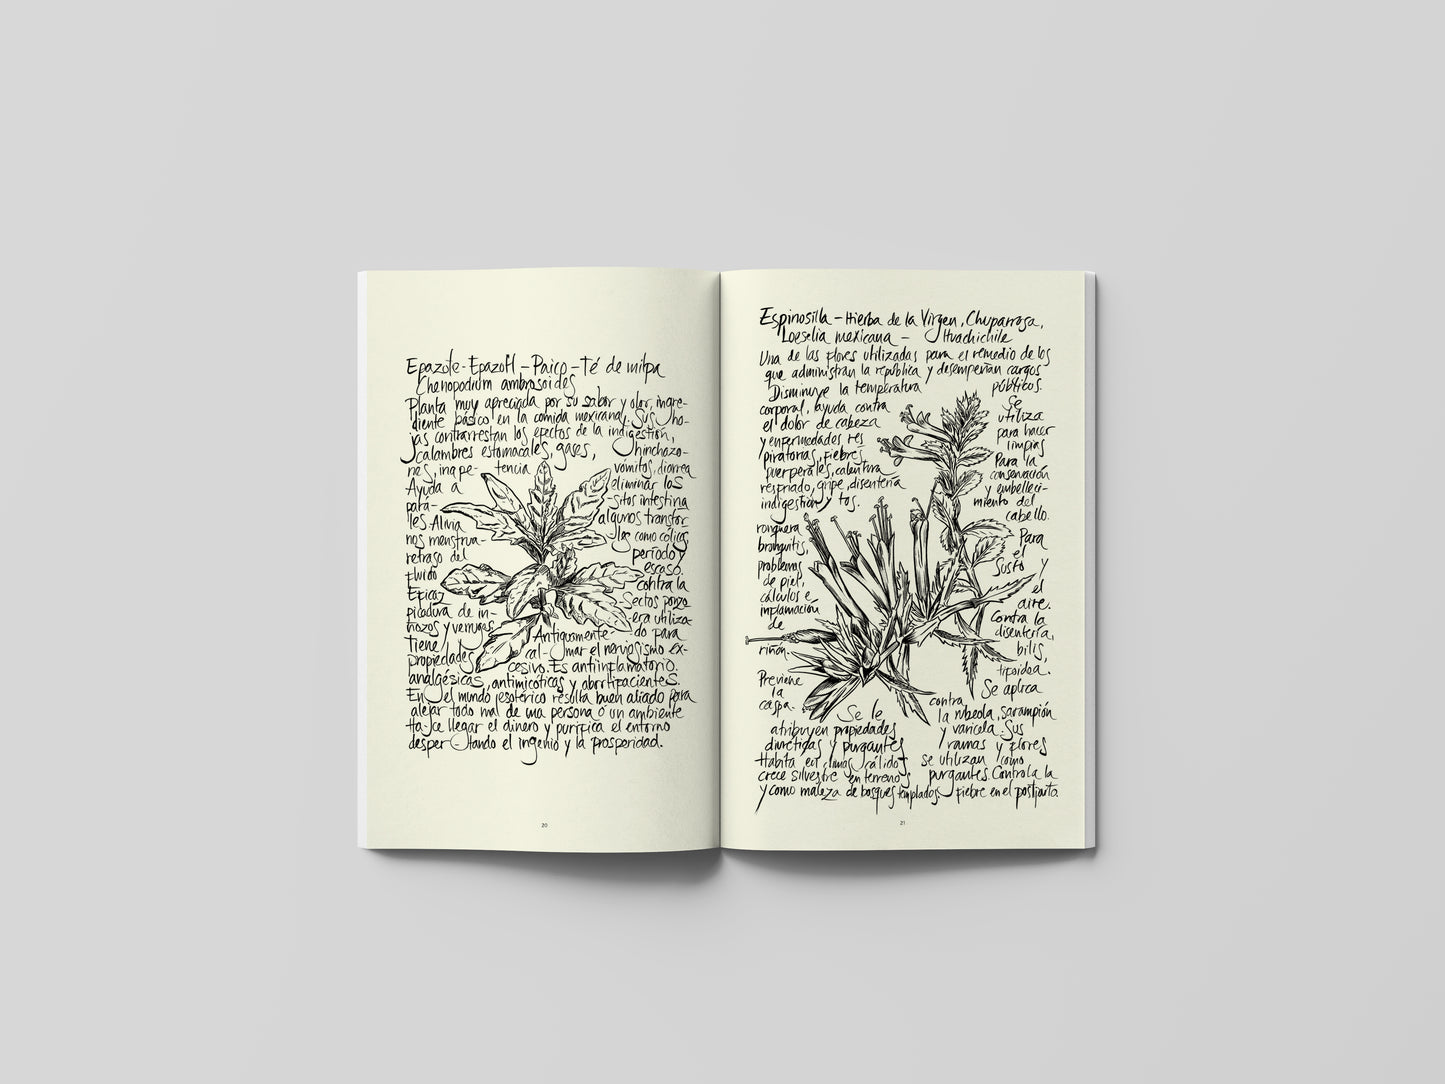 Epazote - Epazotl - Paico - Té de milpa
Chenopodium ambrosoides
Planta muy apreciada por su sabor y olor, ingre-
diente básico en la comida mexicana. Sus ho-
jas contrarrestan los efectos de la indigestión,
calambres estomacales, gases, hinchazo-
nes, inape- tencia vómitos, diarrea
Ayuda a eliminar los
pará- sitos intestina
les. Alivia algunos transtor
nos menstrua- les como cólico,
retraso del período y
fluido escaso.
Eficaz contra la
picadura de in- sectos ponzo
ñozos y verrugas. Antiguamente era utiliza-
tiene do para
propiedades cal- mar el nerviosismo ex-
cesivo. Es antiinflamatorio,
analgésicas, antimicóticas y abortifacientes.
En el mundo esotérico resulta buen aliado para
alejar todo mal de una persona o un ambiente
Ha-ce llegar el dinero y purifica el entorno
desper - tando el ingenio y la prosperidad.
20
Espinosilla - Hierba de la Virgen, Chuparrosa,
Loeselia mexicana - Huachichile
Una de las flores utilizadas para el remedio de los
que administran la república y desempeñan cargos
públicos.
Disminuye la temperatura
corporal, ayuda contra
el dolor de cabeza
y enfermedades res
piratorias, fiebres
puerperales, calentura
resfriado, gripe, disentería
indigestión y tos.
ronquera
bronquitis,
problemas
de piel,
cálculos e
inflamación
de
riñón.
Previene
la
caspa.
Se
utiliza
para hacer
limpias
Para la
conservación
y embelleci-
miento del
cabello.
Para
el
susto y
el
aire.
Contra la
disentería,
bilis,
tifoidea.
Se aplica
contra
la rubeola, sarampión
y varicela. Sus
ramas y flores
se utilizan como
purgantes. Controla la
fiebre en el postparto.
Se le
atribuyen propiedades
diuréticas y purgantes
Habita en climas cálidos
crece silvestre en terrenos
y como maleza de bosques templados.
21